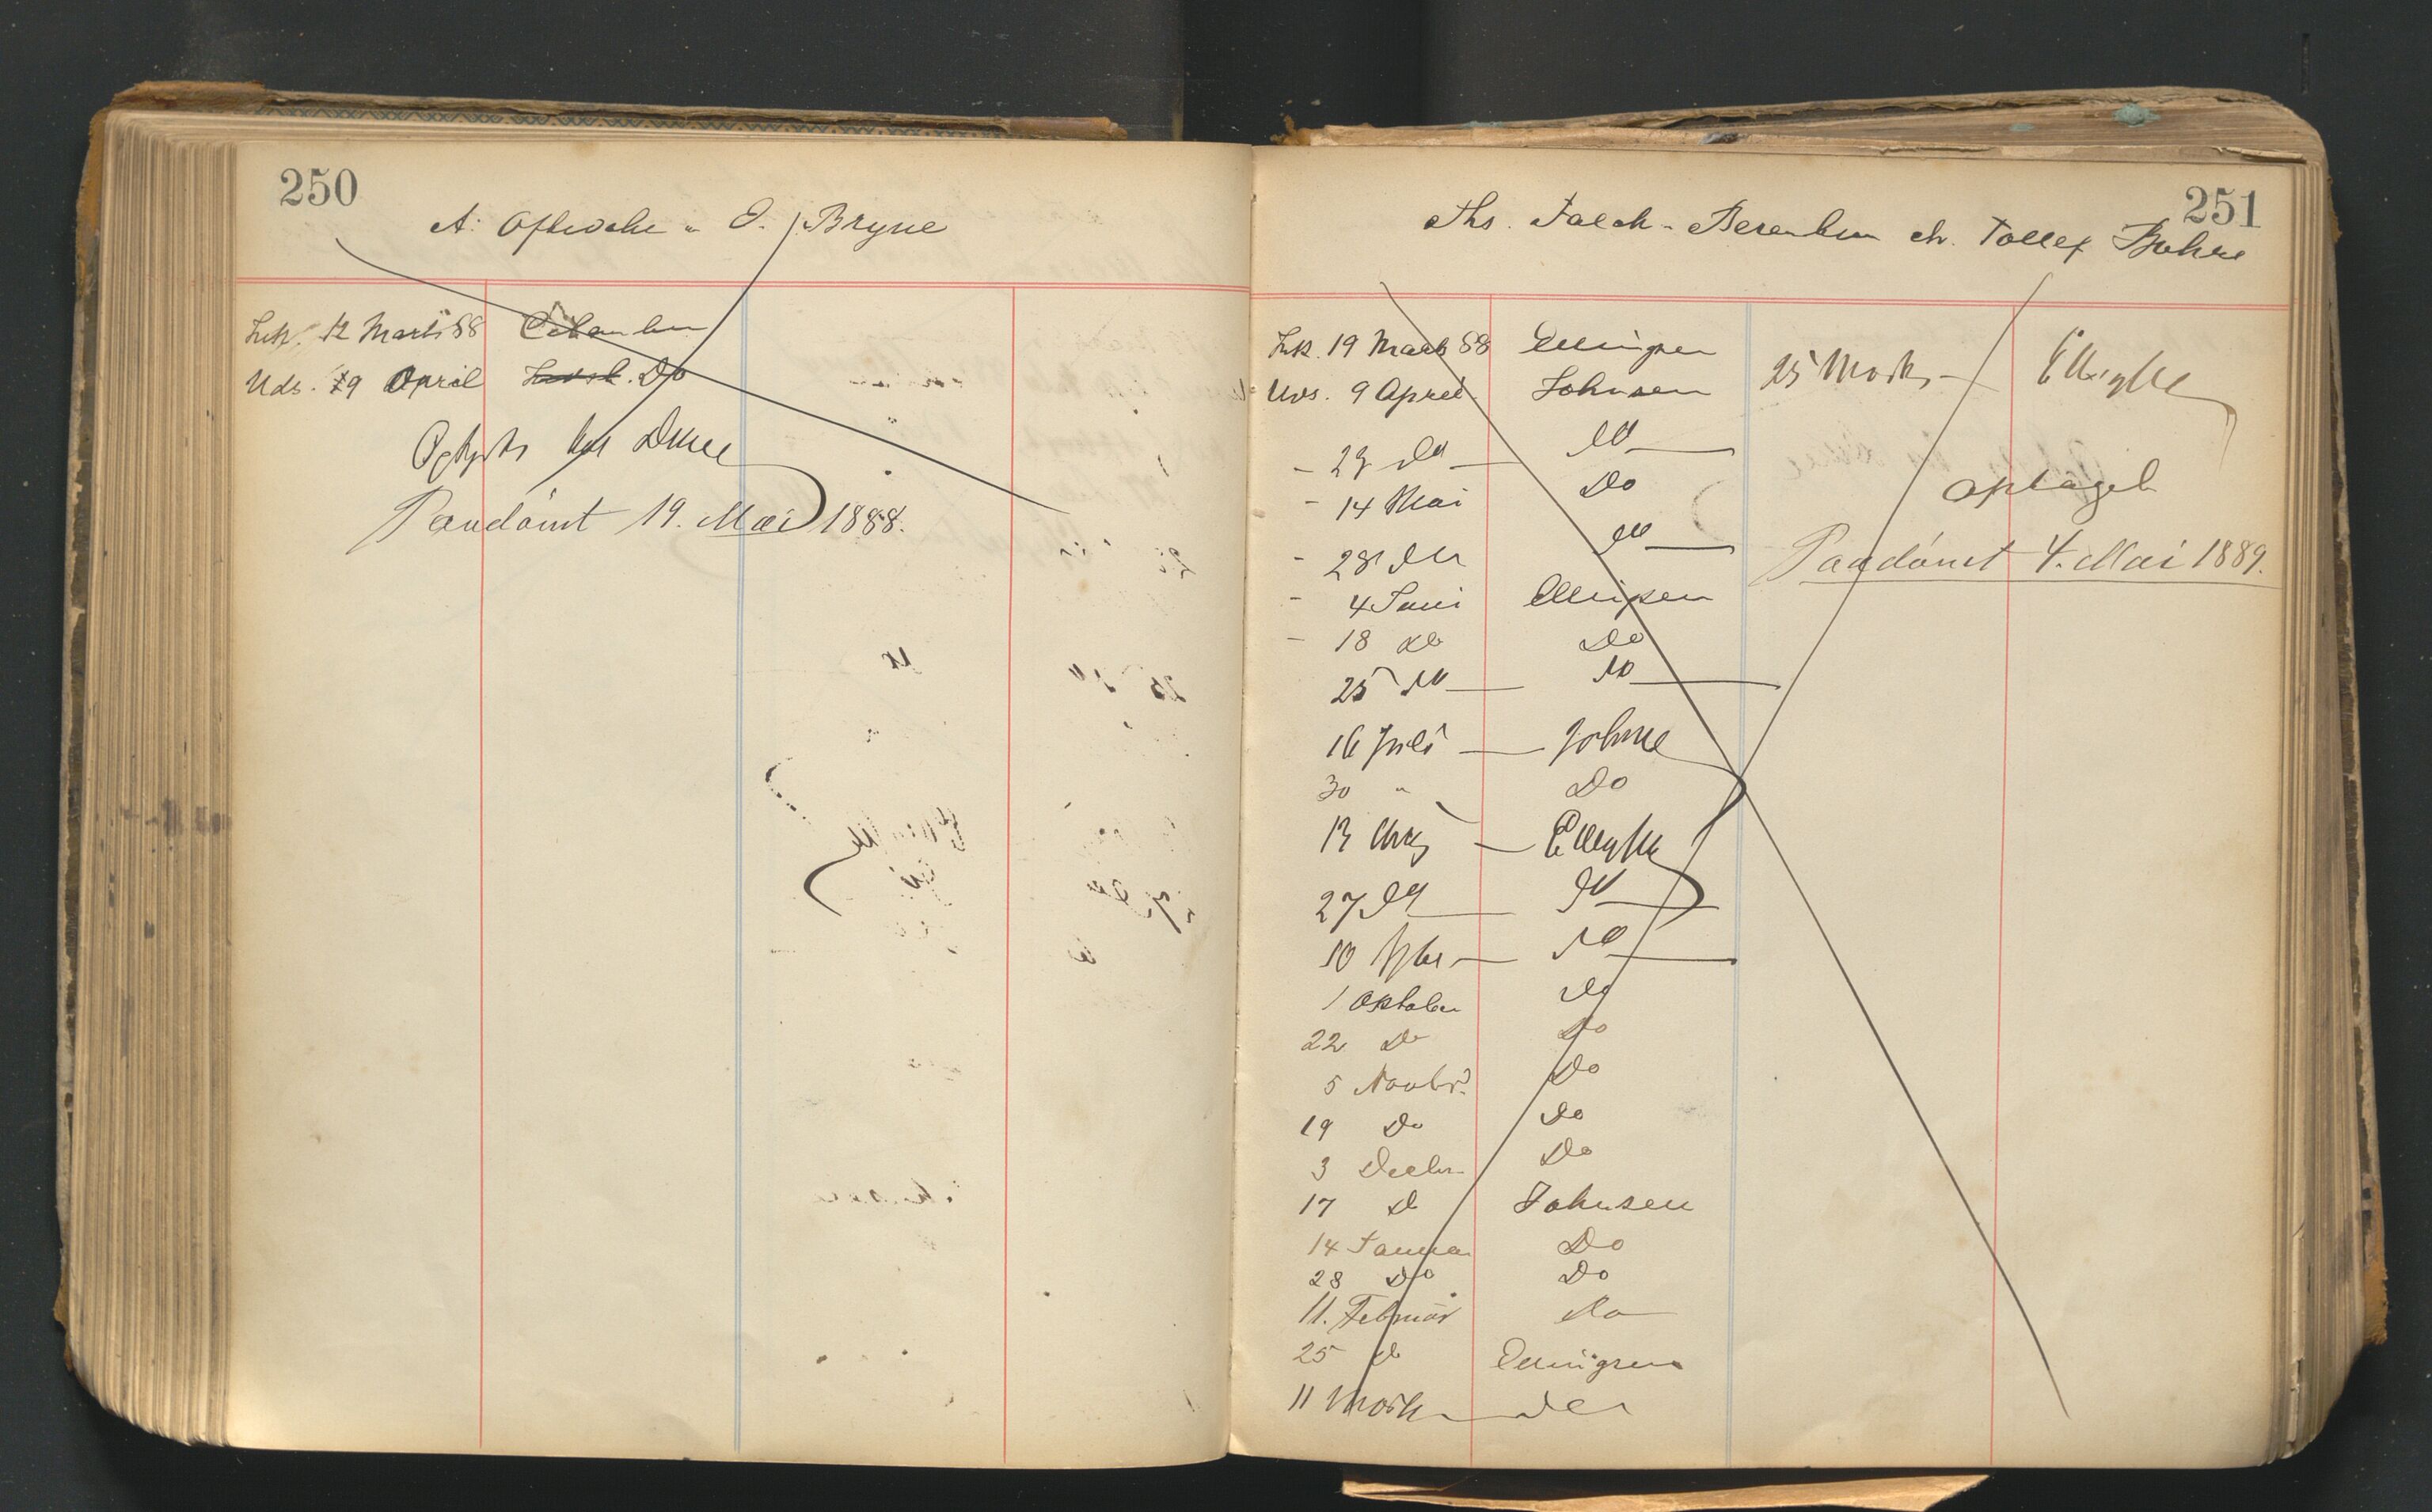 250
A: Oftedahl " O. Bryne
Ink. 12 Marts 88
Uds. 19 April Do
Paadömt 19. Mai 1888.
251
Ths. Falck - ctr. Tollef
Ink. 19 Marts 88 Ellingsen 25 Marts - Ellingsen
Uds. 9 April Johnsen
- 23 Do Do
- 14 Mai Do optaget
- 28 Do Do Paadömt 4. Mai 1889.
- 4 Juni Ellingsen
- 18 do Do
25 Do Do
16 Juli Johnsen
30 " Do
13 Aug Ellingsen
27 Do Do
10 Do
1 Oktober Do
22 Do Do
5 Novbr. Do
19 Do Do
3 Decbr Do
17 D Johnsen
14 Januar Do
28 Do Do
11. Februar Do
25 D Ellingsen
11 Marts Do